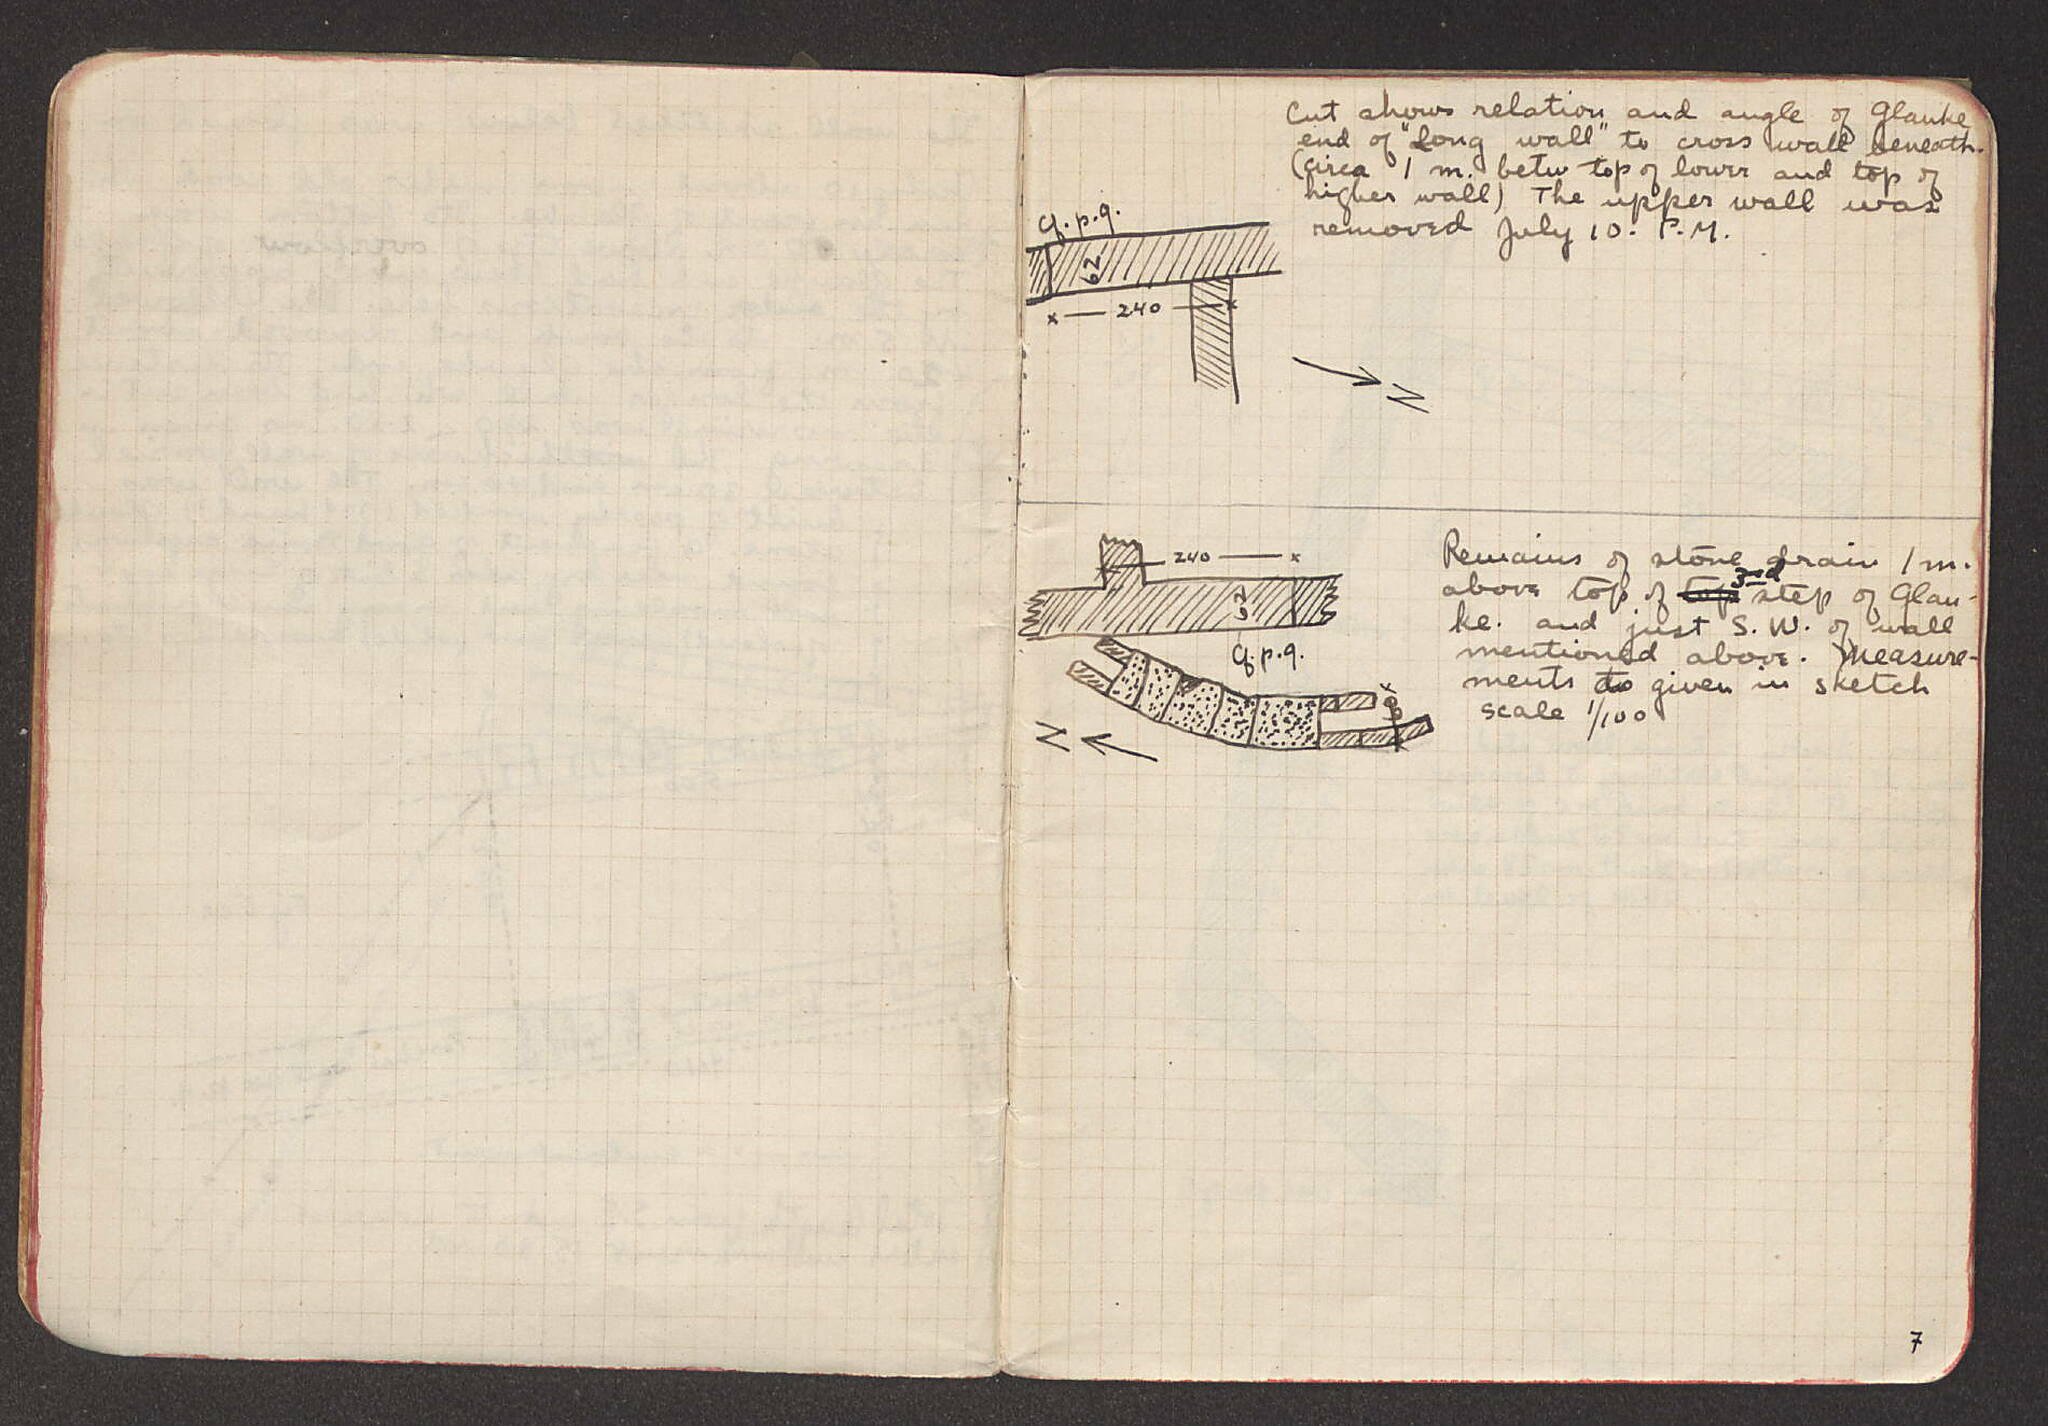 Cut shows relation and angle of Glauke
end of "Long wall" to cross wall beneath.
(circa 1 m. betw top of lower and top of
higher wall) The upper wall was
removed July 10. P.M.
q.p.q.
62
240
N
240
62
q.p.q.
N
Remains of stone drain 1 m.
above top of top 3rd step of Glau-
ke. and just S.W. of wall
mentioned above. Measure-
ments to given in sketch
scale 1/100
7